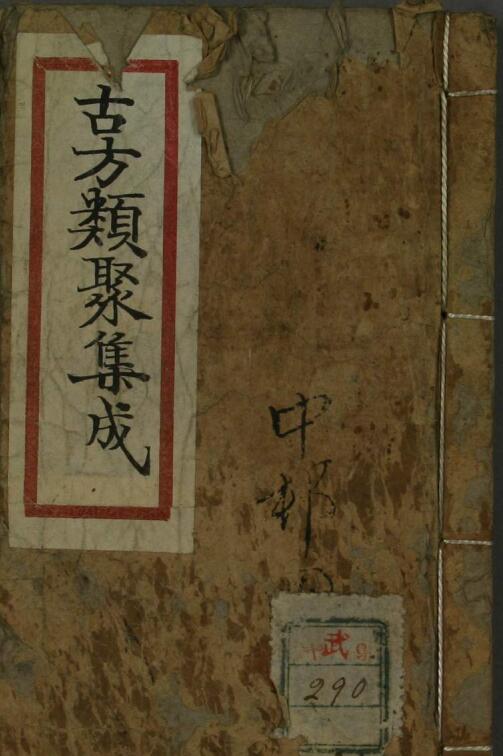 古方類聚集成
中
武
290